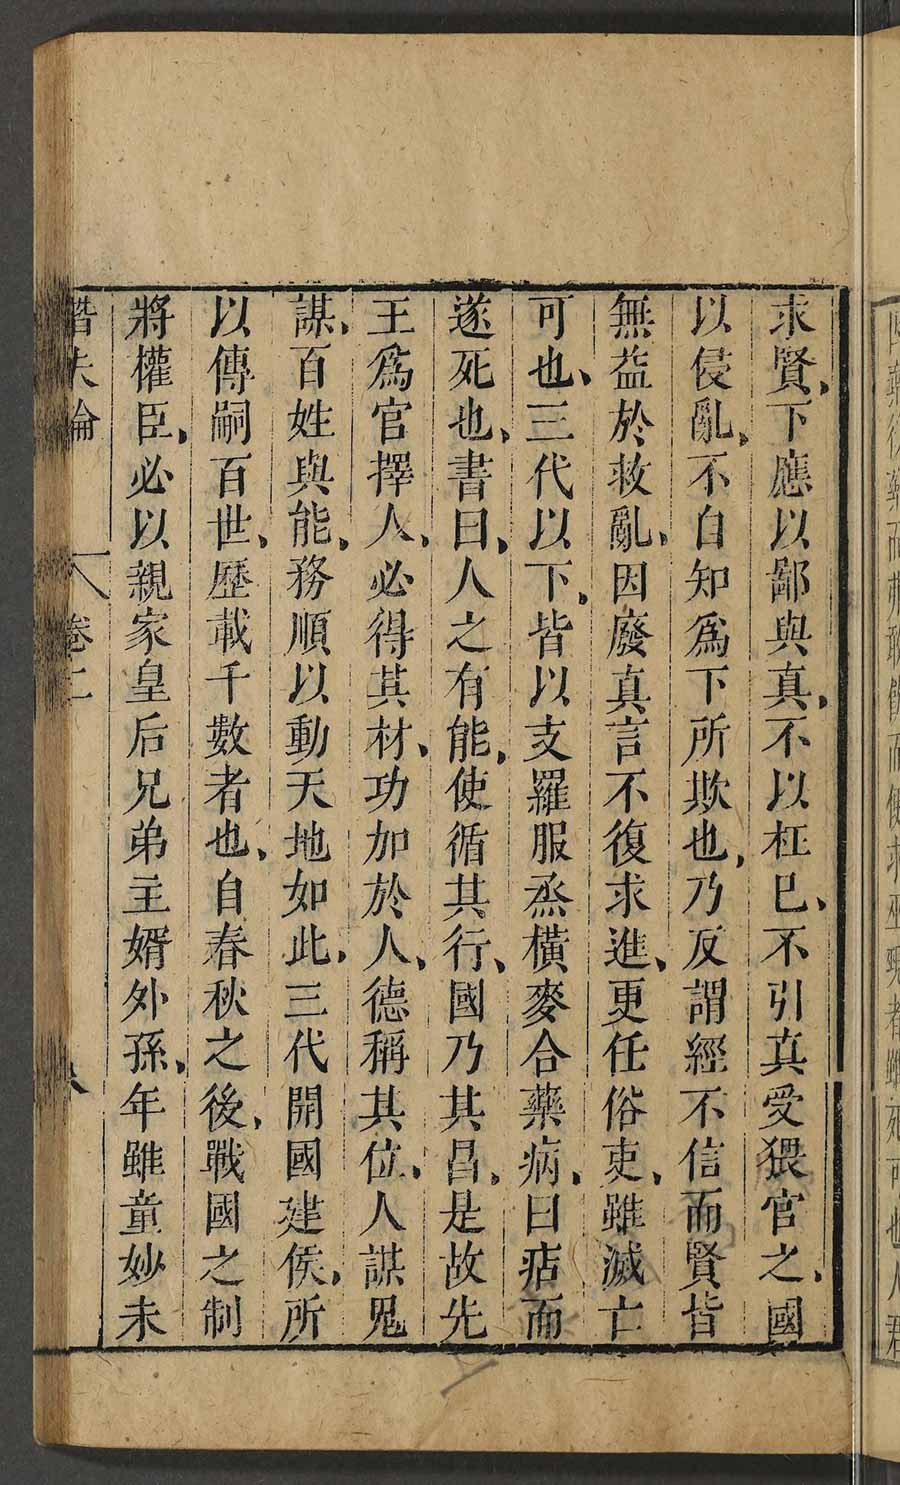 求賢、下應以鄙與真、不以枉已、不引真受猥官之、國
以侵亂、不自知爲下所欺也、乃反謂經不信而賢皆
無益於救亂、因廢真言不復求進、更任俗吏、雖滅亡
可也、三代以下、皆以支羅服烝橫麥合藥病、曰痁而
遂死也、書曰、人之有能、使循其行、國乃其昌、是故先
王爲官擇人、必得其材、功加於人、德稱其位、人謀鬼
謀、百姓與能、務順以動天地如此、三代開國建侯、所
以傳嗣百世、歷載千數者也、自春秋之後、戰國之制
將權臣、必以親家皇后兄弟主婿外孫、年雖童妙未
潛夫論 卷二